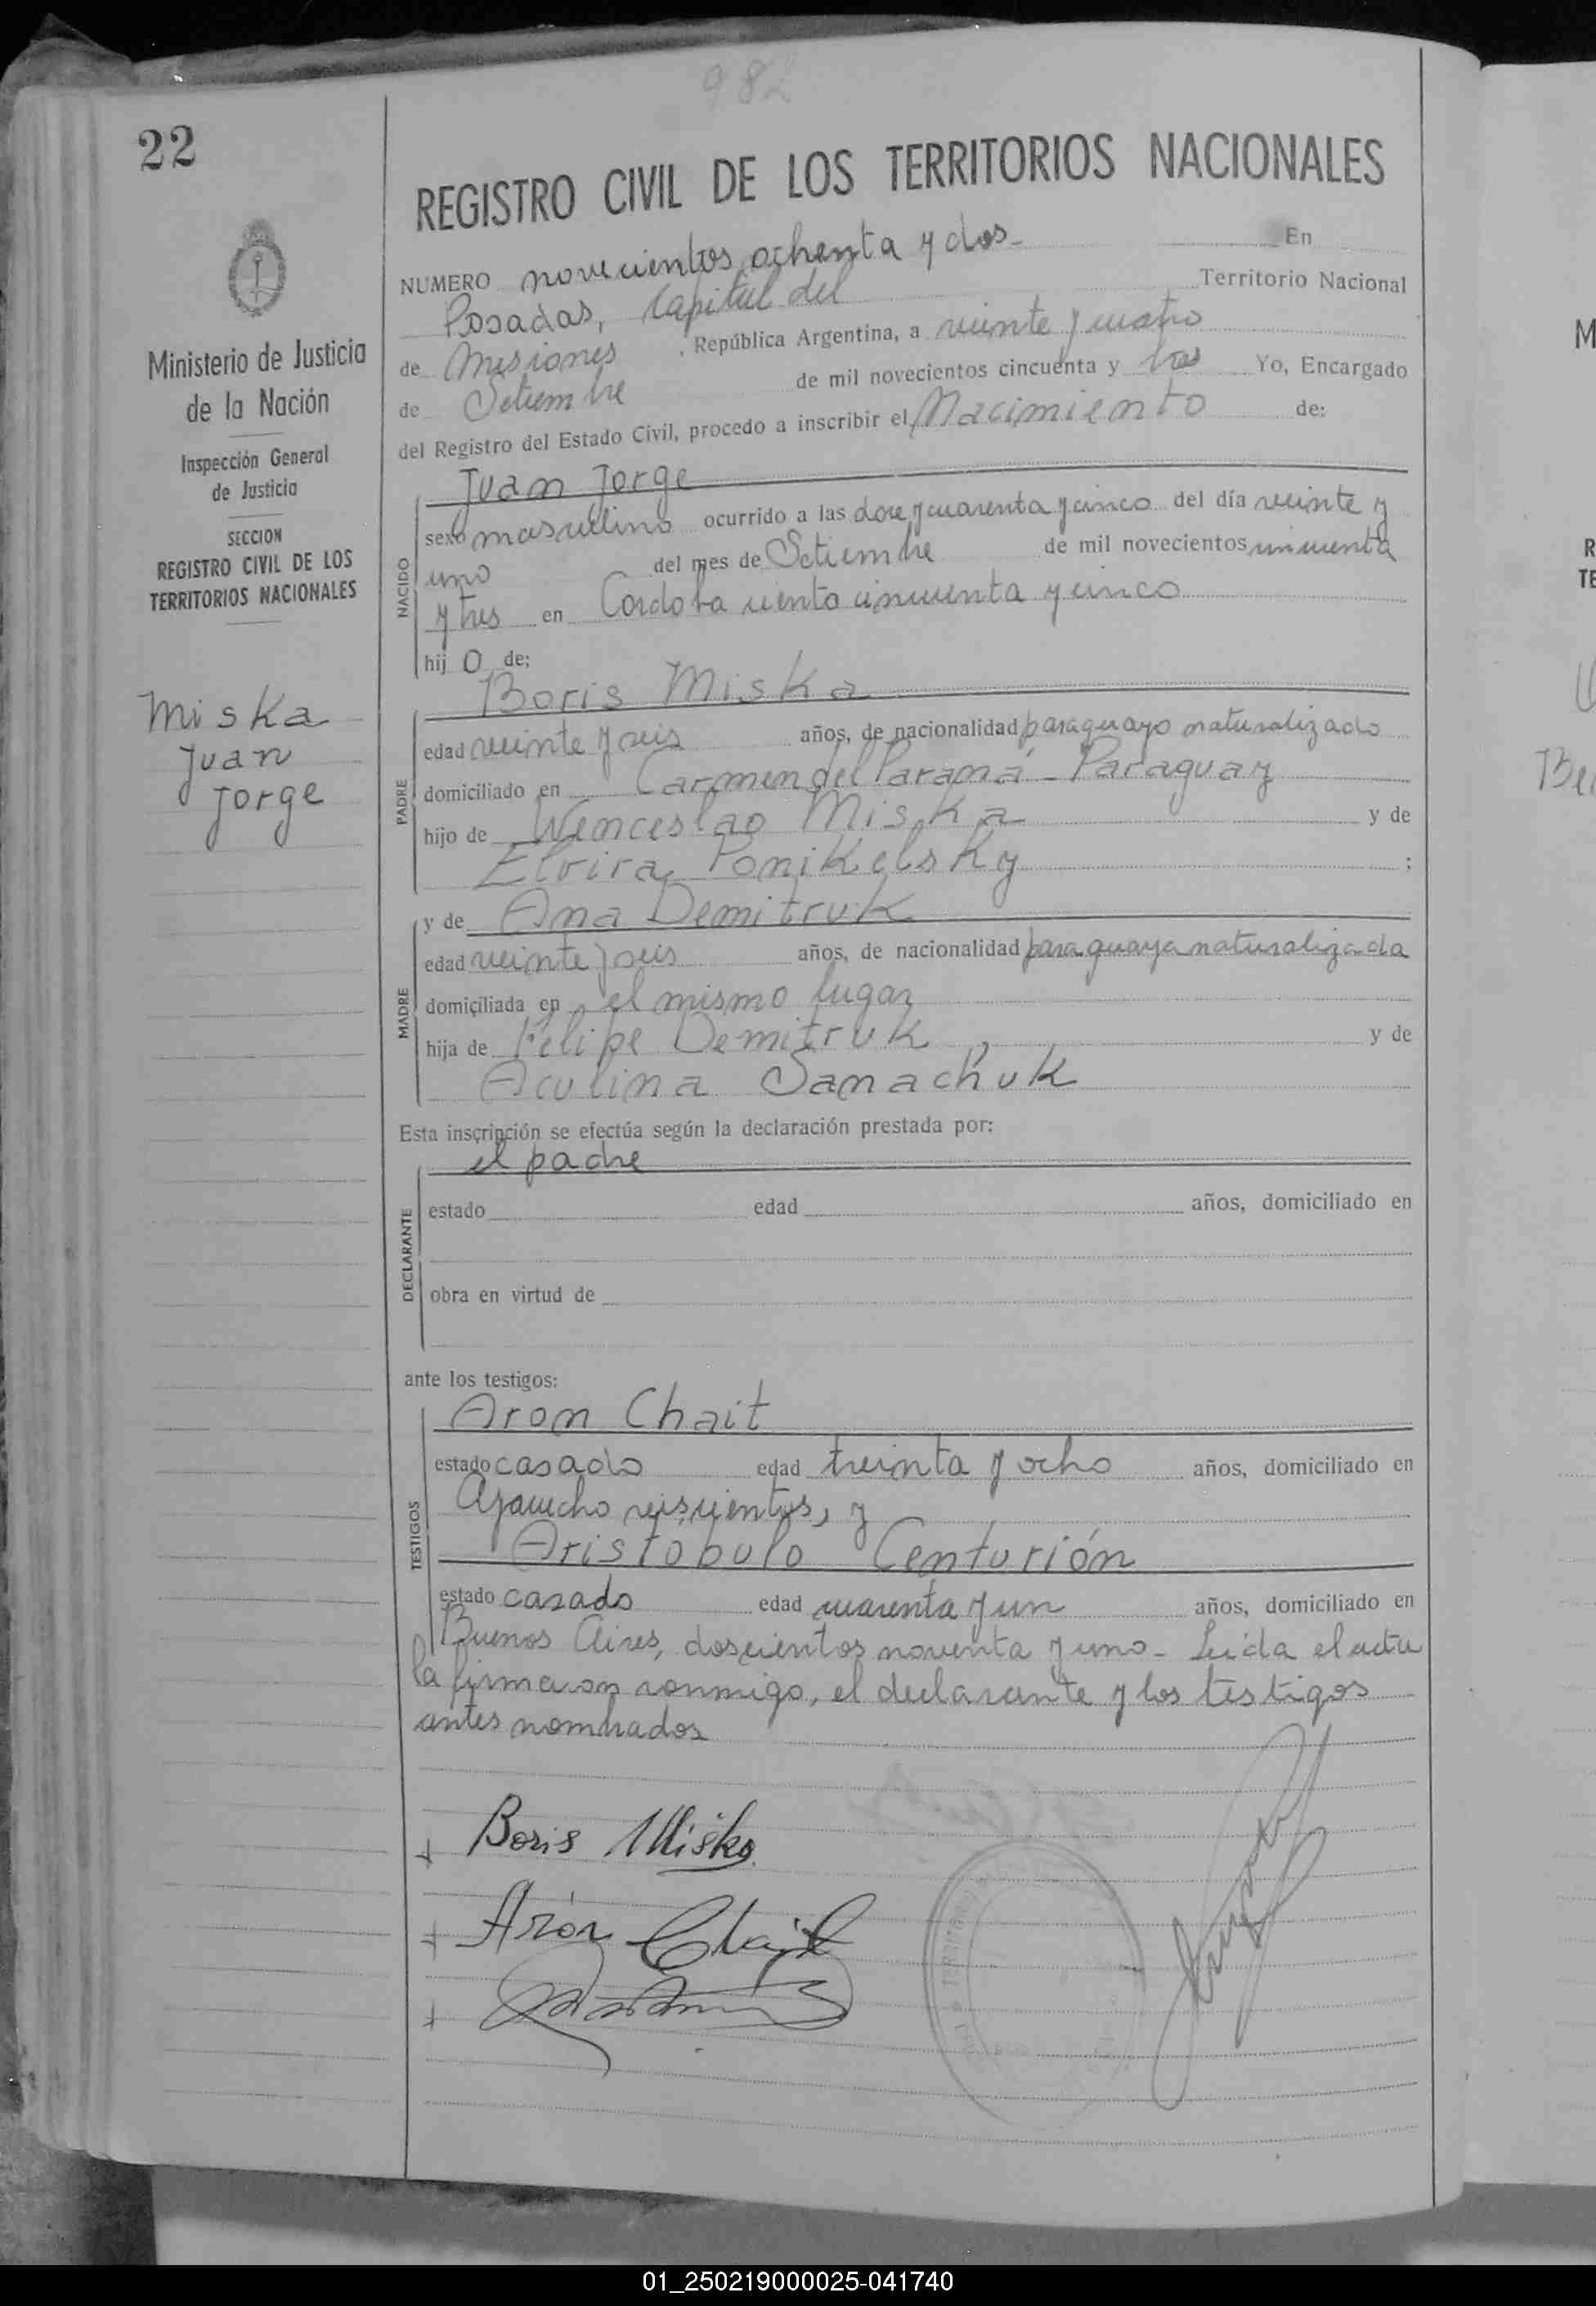 982
22
REGISTRO CIVIL DE LOS TERRITORIOS NACIONALES
NUMERO novecientos ochenta y dos- En
Posadas, Capital del Territorio Nacional
de Misiones, República Argentina, a veinte y cuatro
de Setiembre de mil novecientos cincuenta y tres Yo, Encargado
del Registro del Estado Civil, procedo a inscribir el Nacimiento de:
Ministerio de Justicia
de la Nación
Inspección General
de Justicia
SECCION
REGISTRO CIVIL DE LOS
TERRITORIOS NACIONALES
Miska
Juan
Jorge
NACIDO
Juan Jorge
sexo masculino ocurrido a las doce y cuarenta y cinco del día veinte y
uno del mes de Setiembre de mil novecientos cincuenta
y tres en Cordoba ciento cincuenta y cinco
hij o de:
PADRE
Boris Miska
edad veinte y seis años, de nacionalidad paraguayo naturalizado
domiciliado en Carmen del Paraná - Paraguay
hijo de Wenceslao Miska y de
Elvira Ponikelsky ;
MADRE
y de Ana Demitruk
edad veinte y seis años, de nacionalidad paraguaya naturalizada
domiciliada en el mismo lugar
hija de Felipe Demitruk, y de
Aculina Sanachuk
Esta inscripción se efectúa según la declaración prestada por:
DECLARANTE
el padre
estado edad años, domiciliado en
obra en virtud de
ante los testigos:
TESTIGOS
Aron Chait
estado casado edad treinta y ocho años, domiciliado en
Ayacucho seiscientos, y
Aristóbulo Centurión
estado casado edad cuarenta y un años, domiciliado en
Buenos Aires, doscientos noventa y uno- Leída el acta
la firmaron conmigo, el declarante y los testigos
antes nombrados
Boris Miska
Arón Chait
01_250219000025-041740